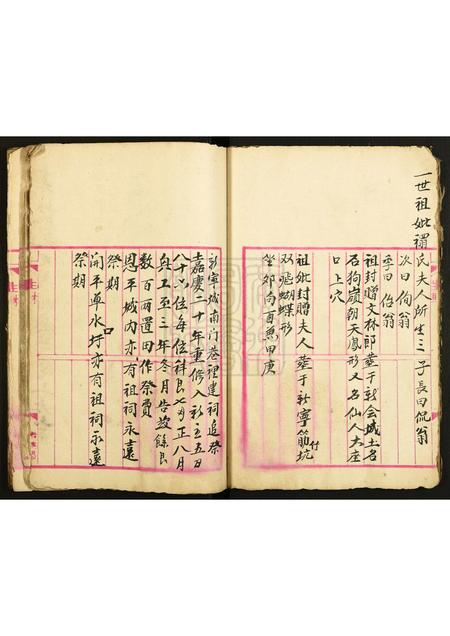 一世祖妣禤氏夫人所生三子長曰侃翁
次曰侚翁
季曰佁翁
祖封贈文林郎葬于新会城土名
石狗嶺朝天鳳形又名仙人大座
口上穴
祖妣封贈夫人葬于新寧筋坑
双飛蝴蝶形
坐卯向酉兼甲庚
新寧城南門巷裡建祠追祭
嘉慶二十年重修入新主五百
八十六位每位科艮七両正八月
興工至三年冬月告竣餘艮
数百両置田作祭員
恩平城内亦有祖祠永遠
祭期
開平單水圩亦有祖祠永遠
祭期